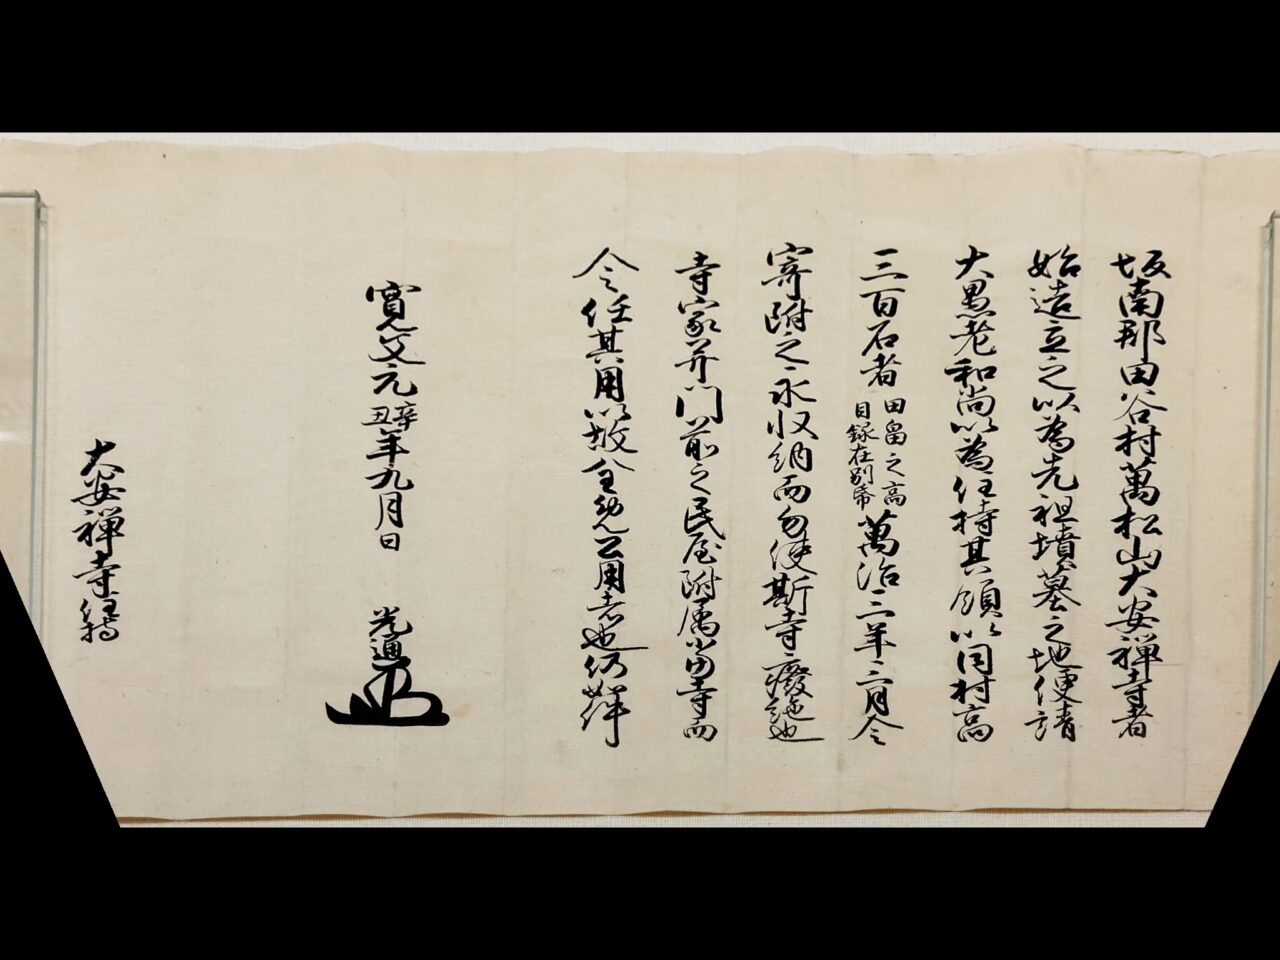 坂南郡田谷村萬松山大安禅寺者
始造立之以為先祖墳墓之地便請
大愚老和尚以為住持其領以同村高
三百石者
田畠之高
目録在別帋
萬治三年二月令
寄附之永収納而勿使斯寺廢
寺家并門前之民屋附属當寺而
令任其用以故全免公用者也仍如件
寛文元辛丑年九月日
光通
大安禅寺住持